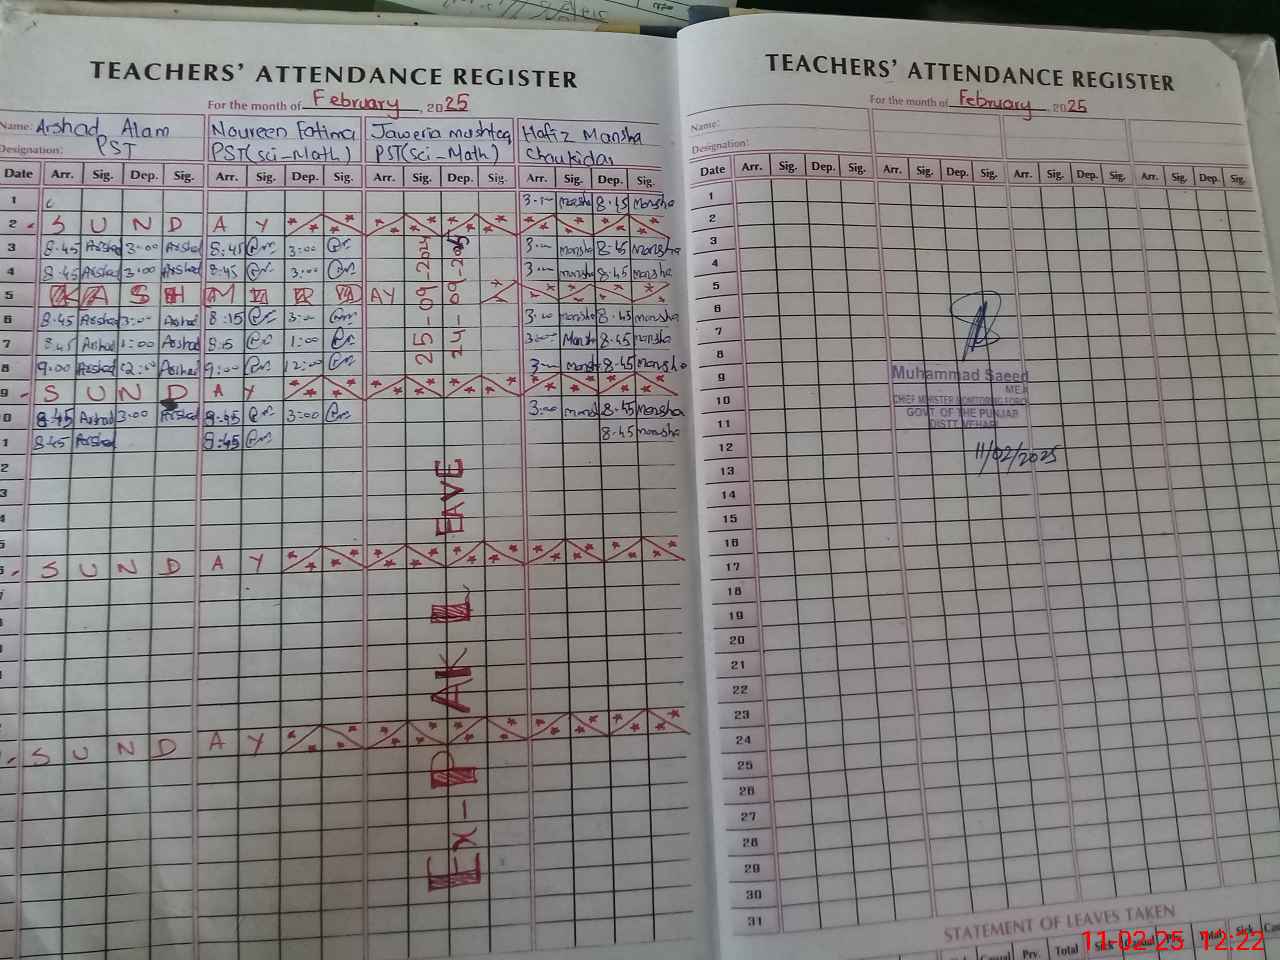 TEACHERS' ATTENDANCE REGISTER
For the month of February, 2025
Name: Arshad Alam Noureen Fatima Jaweria mushtaq Hafiz Mansha
Designation: PST PST(sci-Math) PST(sci-Math) Chaukidar
Date Arr. Sig. Dep. Sig. Arr. Sig. Dep. Sig. Arr. Sig. Dep. Sig. Arr. Sig. Dep. Sig.
1 8.45 mansha
2 SUNDAY
3 8.45 Arshad 3:00 Arshad 8:45 3:00 mansha 8.45 mansha
4 8.45 Arshad 3:00 Arshad 8:45 3:00 mansha 8.45 mansha
5 KASHMIR DAY
6 8.45 Arshad 3:00 Arshad 8:15 3:00 3:00 mansha 8.45 mansha
7 8.45 Arshad 1:00 Arshad 1:00 3:00 Mansha 8.45 mansha
8 9.00 Arshad 12:00 Arshad 9:00 12:00 mansha 8.45 mansha
9 SUNDAY
10 8.45 Arshad 3:00 Arshad 3:00 3:00 mansha 8.45 mansha
11 8.45 Arshad 8:45 8.45 mansha
SUNDAY
SUNDAY
25-09-2024
24-09-2025
Ex-PAK LEAVE
TEACHERS' ATTENDANCE REGISTER
For the month of February, 2025
Name:
Designation:
Date Arr. Sig. Dep. Sig. Arr. Sig. Dep. Sig. Arr. Sig. Dep. Sig. Arr. Sig. Dep. Sig.
1
2
3
4
5
6
7
8
9
10
11
12
13
14
15
16
17
18
19
20
21
22
23
24
25
26
27
28
29
30
31
Muhammad Saeed
MEA
CHIEF MINISTER MONITORING FORCE
GOVT. OF THE PUNJAB
DISTT. VEHARI
11/02/2025
STATEMENT OF LEAVES TAKEN
Casual Prv. Total Sick Casual Prv. Total Sick
11-02-25 12:22